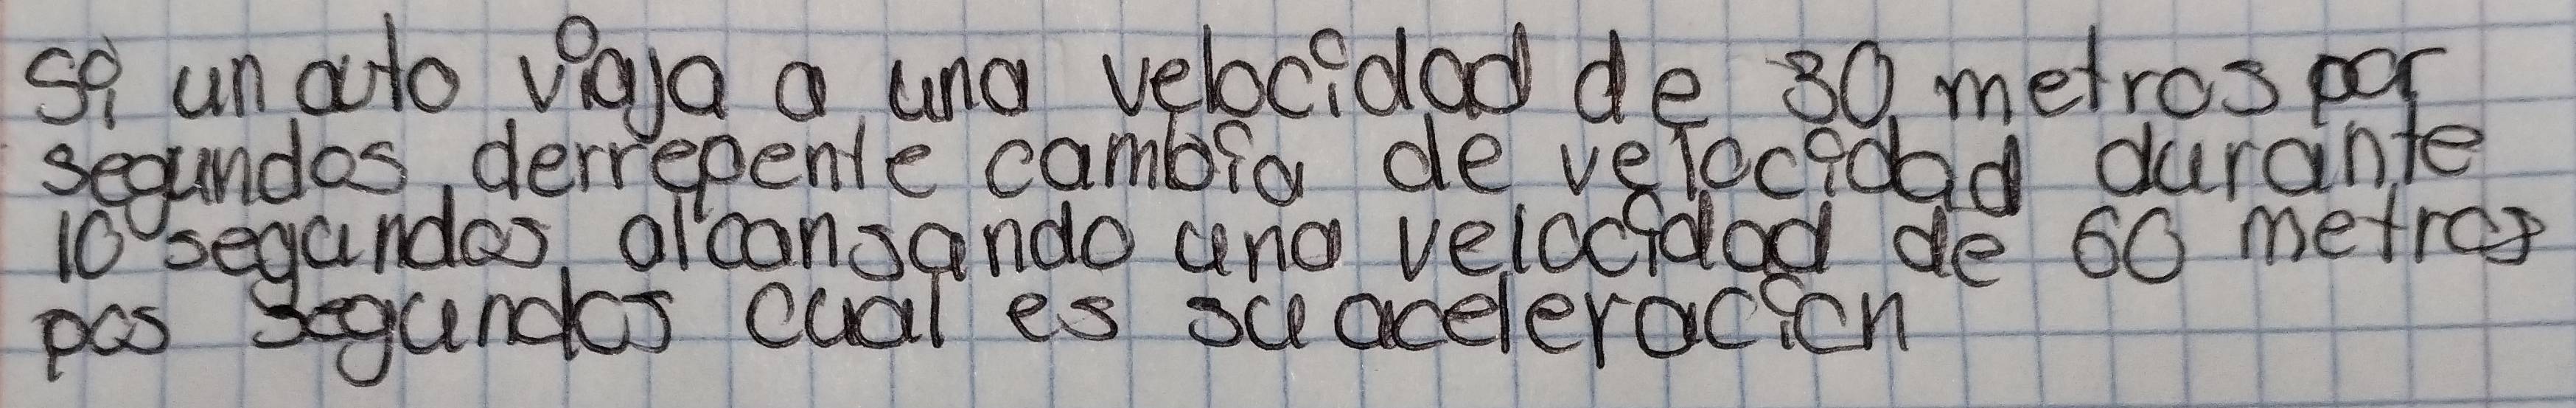 Si un auto viaja a una velocidad de 30 metros por
segundos, derrepente cambia de velocidad durante
10 segundos, alcansando una velocidad de 60 metros
pos segundos cual es su aceleracion